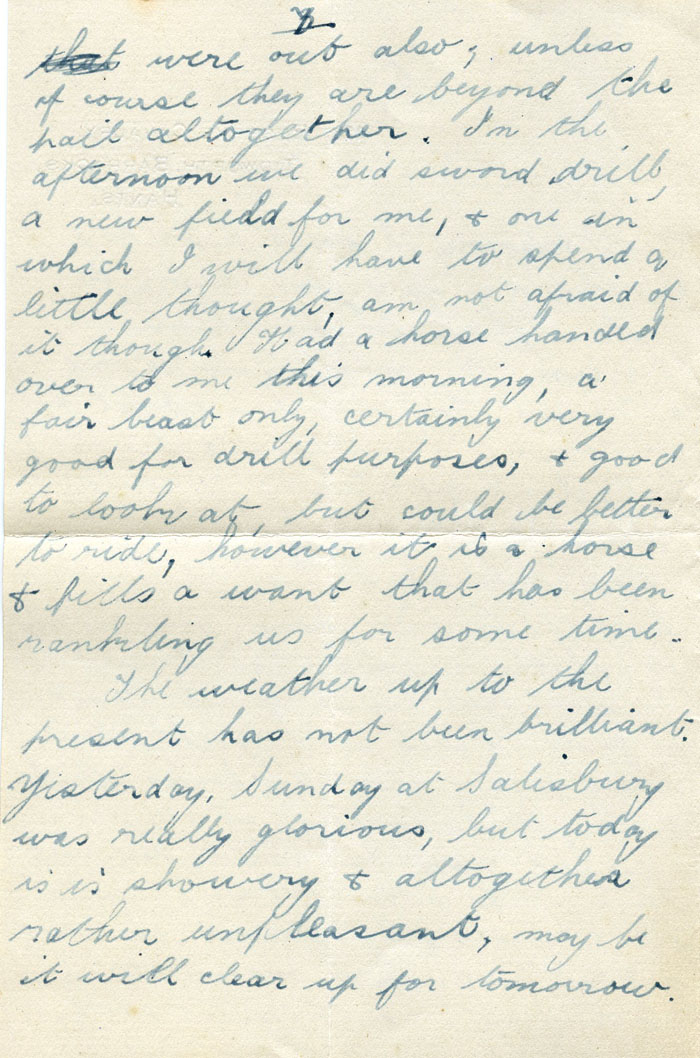 7
that were out also; unless
of course they are beyond the
pail altogether. In the
afternoon we did sword drill,
a new field for me, & one in
which I will have to spend a
little thought, am not afraid of
it though. Had a horse handed
over to me this morning, a
fair beast only, certainly very
good for drill purposes, & good
to look at, but could be better
to ride, however it is a horse
& fills a want that has been
rankling us for some time.
The weather up to the
present has not been brilliant.
Yesterday, Sunday at Salisbury
was really glorious, but today
is is showery & altogether
rather unpleasant, may be
it will clear up for tomorrow.